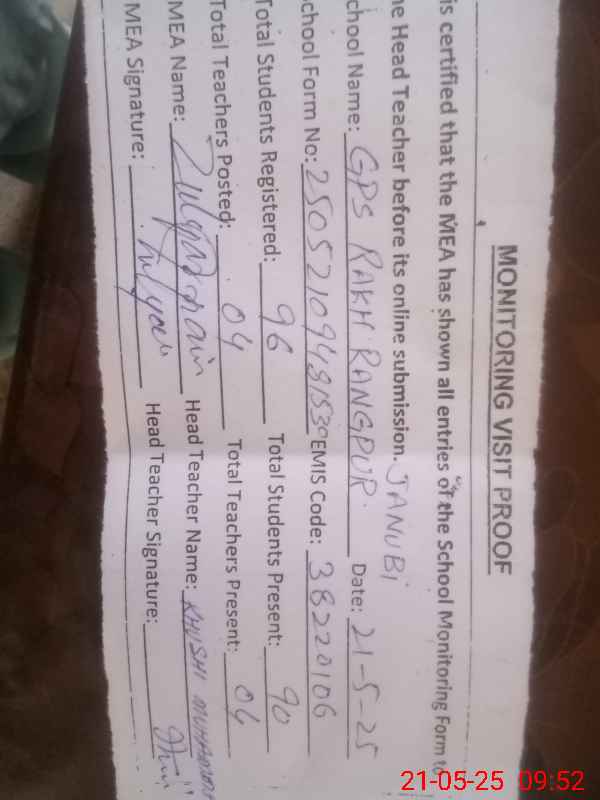 MONITORING VISIT PROOF
is certified that the MEA has shown all entries of the School Monitoring Form to
he Head Teacher before its online submission. JANUBi
chool Name: GPS RAKH RANGPUR. Date: 21-5-25
School Form No: EMIS Code: 38220106
Total Students Registered: 96 Total Students Present: 90
Total Teachers Posted: 04 Total Teachers Present: 04
MEA Name: Head Teacher Name: KHUSHI MUHAMMAD
MEA Signature: Head Teacher Signature:
21-05-25 09:52